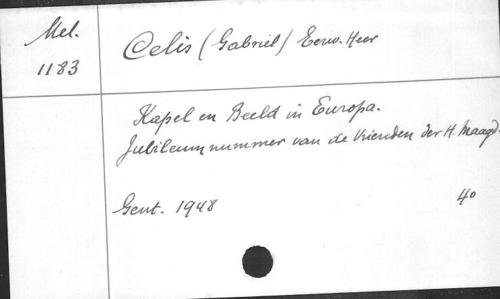 Mel.
1183
Celis (Gabriel) Eerw. Heer
Kapel en Beeld in Europa.
Jubileumnummer van de Vrienden der H. Maagd.
Gent. 1948
4°